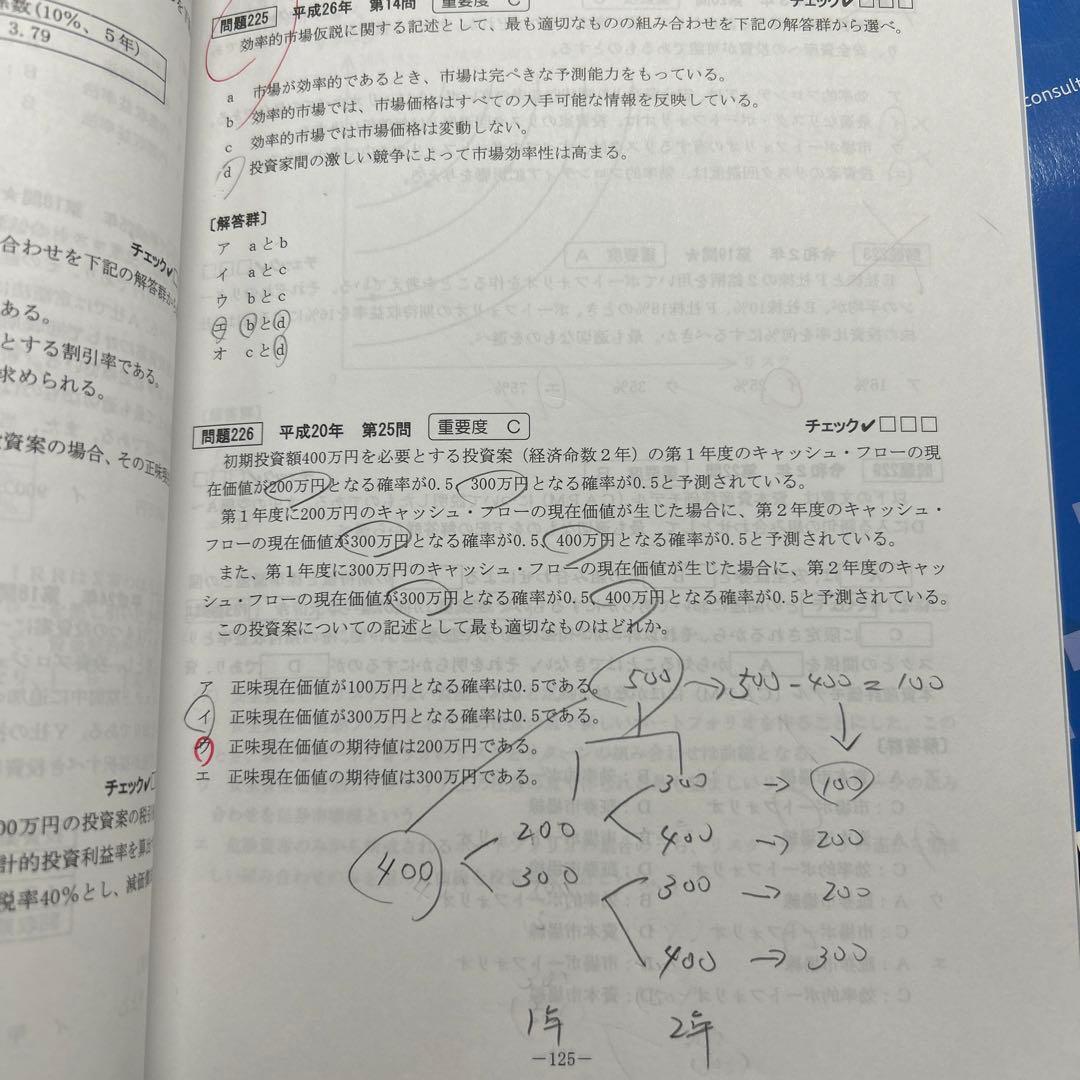 係数(10%、5年)
3.79
チェック✔□
合わせを下記の解答群から
ある。
とする割引率である。
求められる。
資案の場合、その正味現
チェック✔□
00万円の投資案の税引
計的投資利益率を算出
税率40%とし、減価償
問題225 平成26年 第14問 重要度 C チェック✔□□□
効率的市場仮説に関する記述として、最も適切なものの組み合わせを下記の解答群から選べ。
a 市場が効率的であるとき、市場は完ぺきな予測能力をもっている。
b 効率的市場では、市場価格はすべての入手可能な情報を反映している。
c 効率的市場では市場価格は変動しない。
d 投資家間の激しい競争によって市場効率性は高まる。
〔解答群〕
ア aとb
イ aとc
ウ bとc
エ bとd
オ cとd
問題226 平成20年 第25問 重要度 C チェック✔□□□
初期投資額400万円を必要とする投資案(経済命数2年)の第1年度のキャッシュ・フローの現
在価値が200万円となる確率が0.5、300万円となる確率が0.5と予測されている。
第1年度に200万円のキャッシュ・フローの現在価値が生じた場合に、第2年度のキャッシュ・
フローの現在価値が300万円となる確率が0.5、400万円となる確率が0.5と予測されている。
また、第1年度に300万円のキャッシュ・フローの現在価値が生じた場合に、第2年度のキャッ
シュ・フローの現在価値が300万円となる確率が0.5、400万円となる確率が0.5と予測されている。
この投資案についての記述として最も適切なものはどれか。
ア 正味現在価値が100万円となる確率は0.5である。
イ 正味現在価値が300万円となる確率は0.5である。
ウ 正味現在価値の期待値は200万円である。
エ 正味現在価値の期待値は300万円である。
500 → 500-400=100
300 → 100
200 400 → 200
400 300 300 → 200
400 → 300
1年 2年
－125－
consult